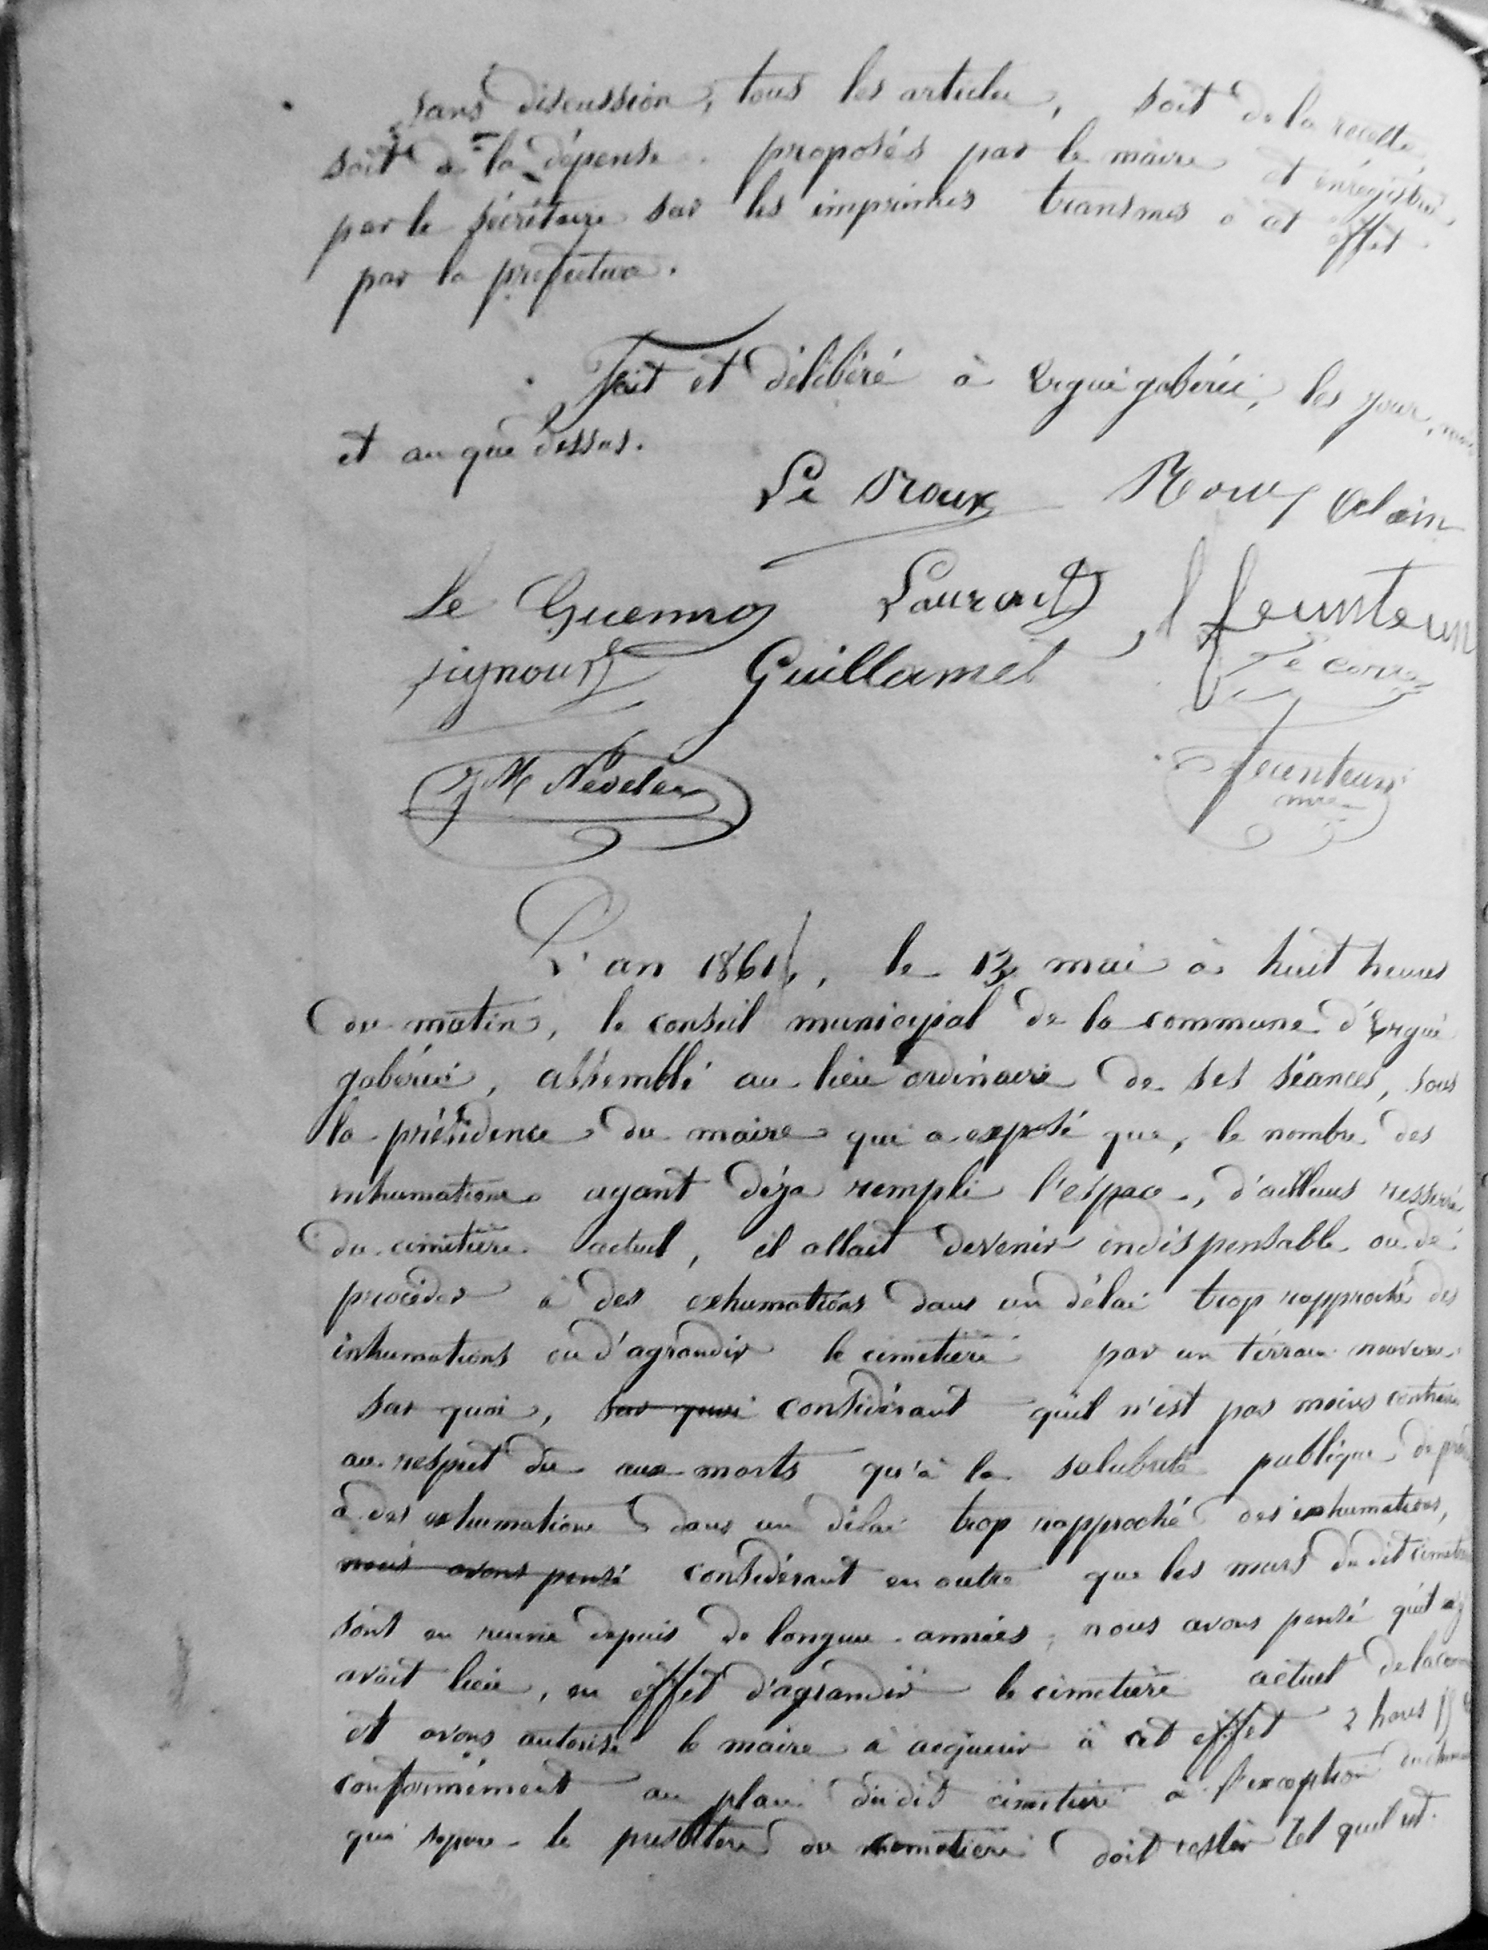 sans discussion, tous les articles, soit de la recette,
soit de la dépense proposés par le maire et enregistrés
par le sécrétaire sur les imprimés transmis à cet effet
par la préfecture.
Fait et délibéré à Ergué gabéric, les jour, mois
et an que dessus.
Le Roux Rouz Alain
le Guenno Laurent feunteun
Signour Guillamet Le Corre
JM Nedelec feunteun
mre
L'an 1861, le 13 mai à huit heures
du matin, le conseil municipal de la commune d'Ergué
gabéric, assemblé au lieu ordinaire de ses séances, sous
la présidence du maire qui a exposé que, le nombre des
inhumations ayant déja rempli l'espace, d'ailleurs resserré
du cimetière actuel, il allait devenir indispensable ou de
procéder à des exhumations dans un délai trop rapproché des
inhumations ou d'agrandir le cimetière par un terrain nouveau.
Sur quoi, sur quoi considérant qu'il n'est pas moins contraire
au respect du aux morts qu'à la salubrité publique de
à des exhumations dans un délai trop rapproché des inhumations,
nous avons pensé considérant en outre que les murs du dit cimetière
sont en ruine depuis de longues années, nous avons pensé qu'il y
avait lieu, en effet d'agrandir le cimetière actuel de la
et avons autorisé le maire à acquérir à cet effet 2
conformément au plan dudit cimetière à l'exception du
qui sépare le presbitère du cimetière doit rester tel qu'il est.